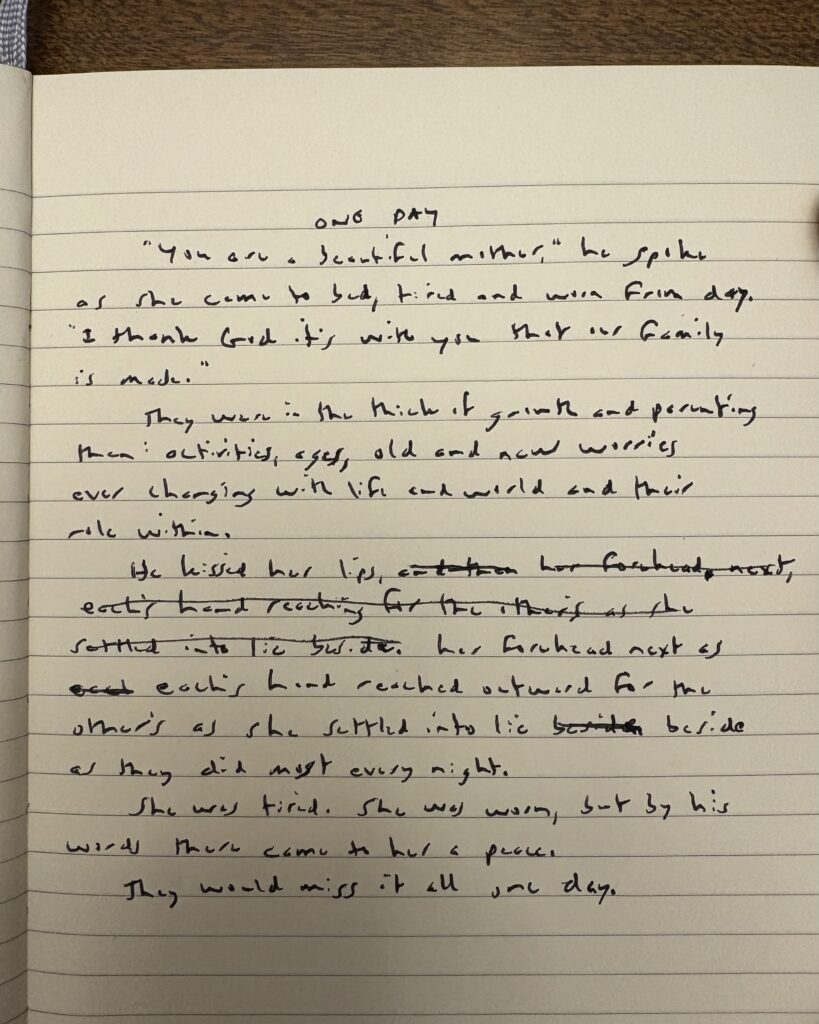 ONE DAY
"You are a beautiful mother," he spoke
as she came to bed, tired and worn from day.
"I thank God it's with you that our family
is made."
They were in the thick of growth and parenting
then: activities, ages, old and new worries
ever changing with life and world and their
role within.
He kissed her lips, and then her forehead, next,
each's hand reaching for the other's as she
settled into lie beside. her forehead next as
each's hand reached outward for the
other's as she settled into lie beside beside
as they did most every night.
She was tired. She was worn, but by his
words there came to her a peace.
They would miss it all one day.